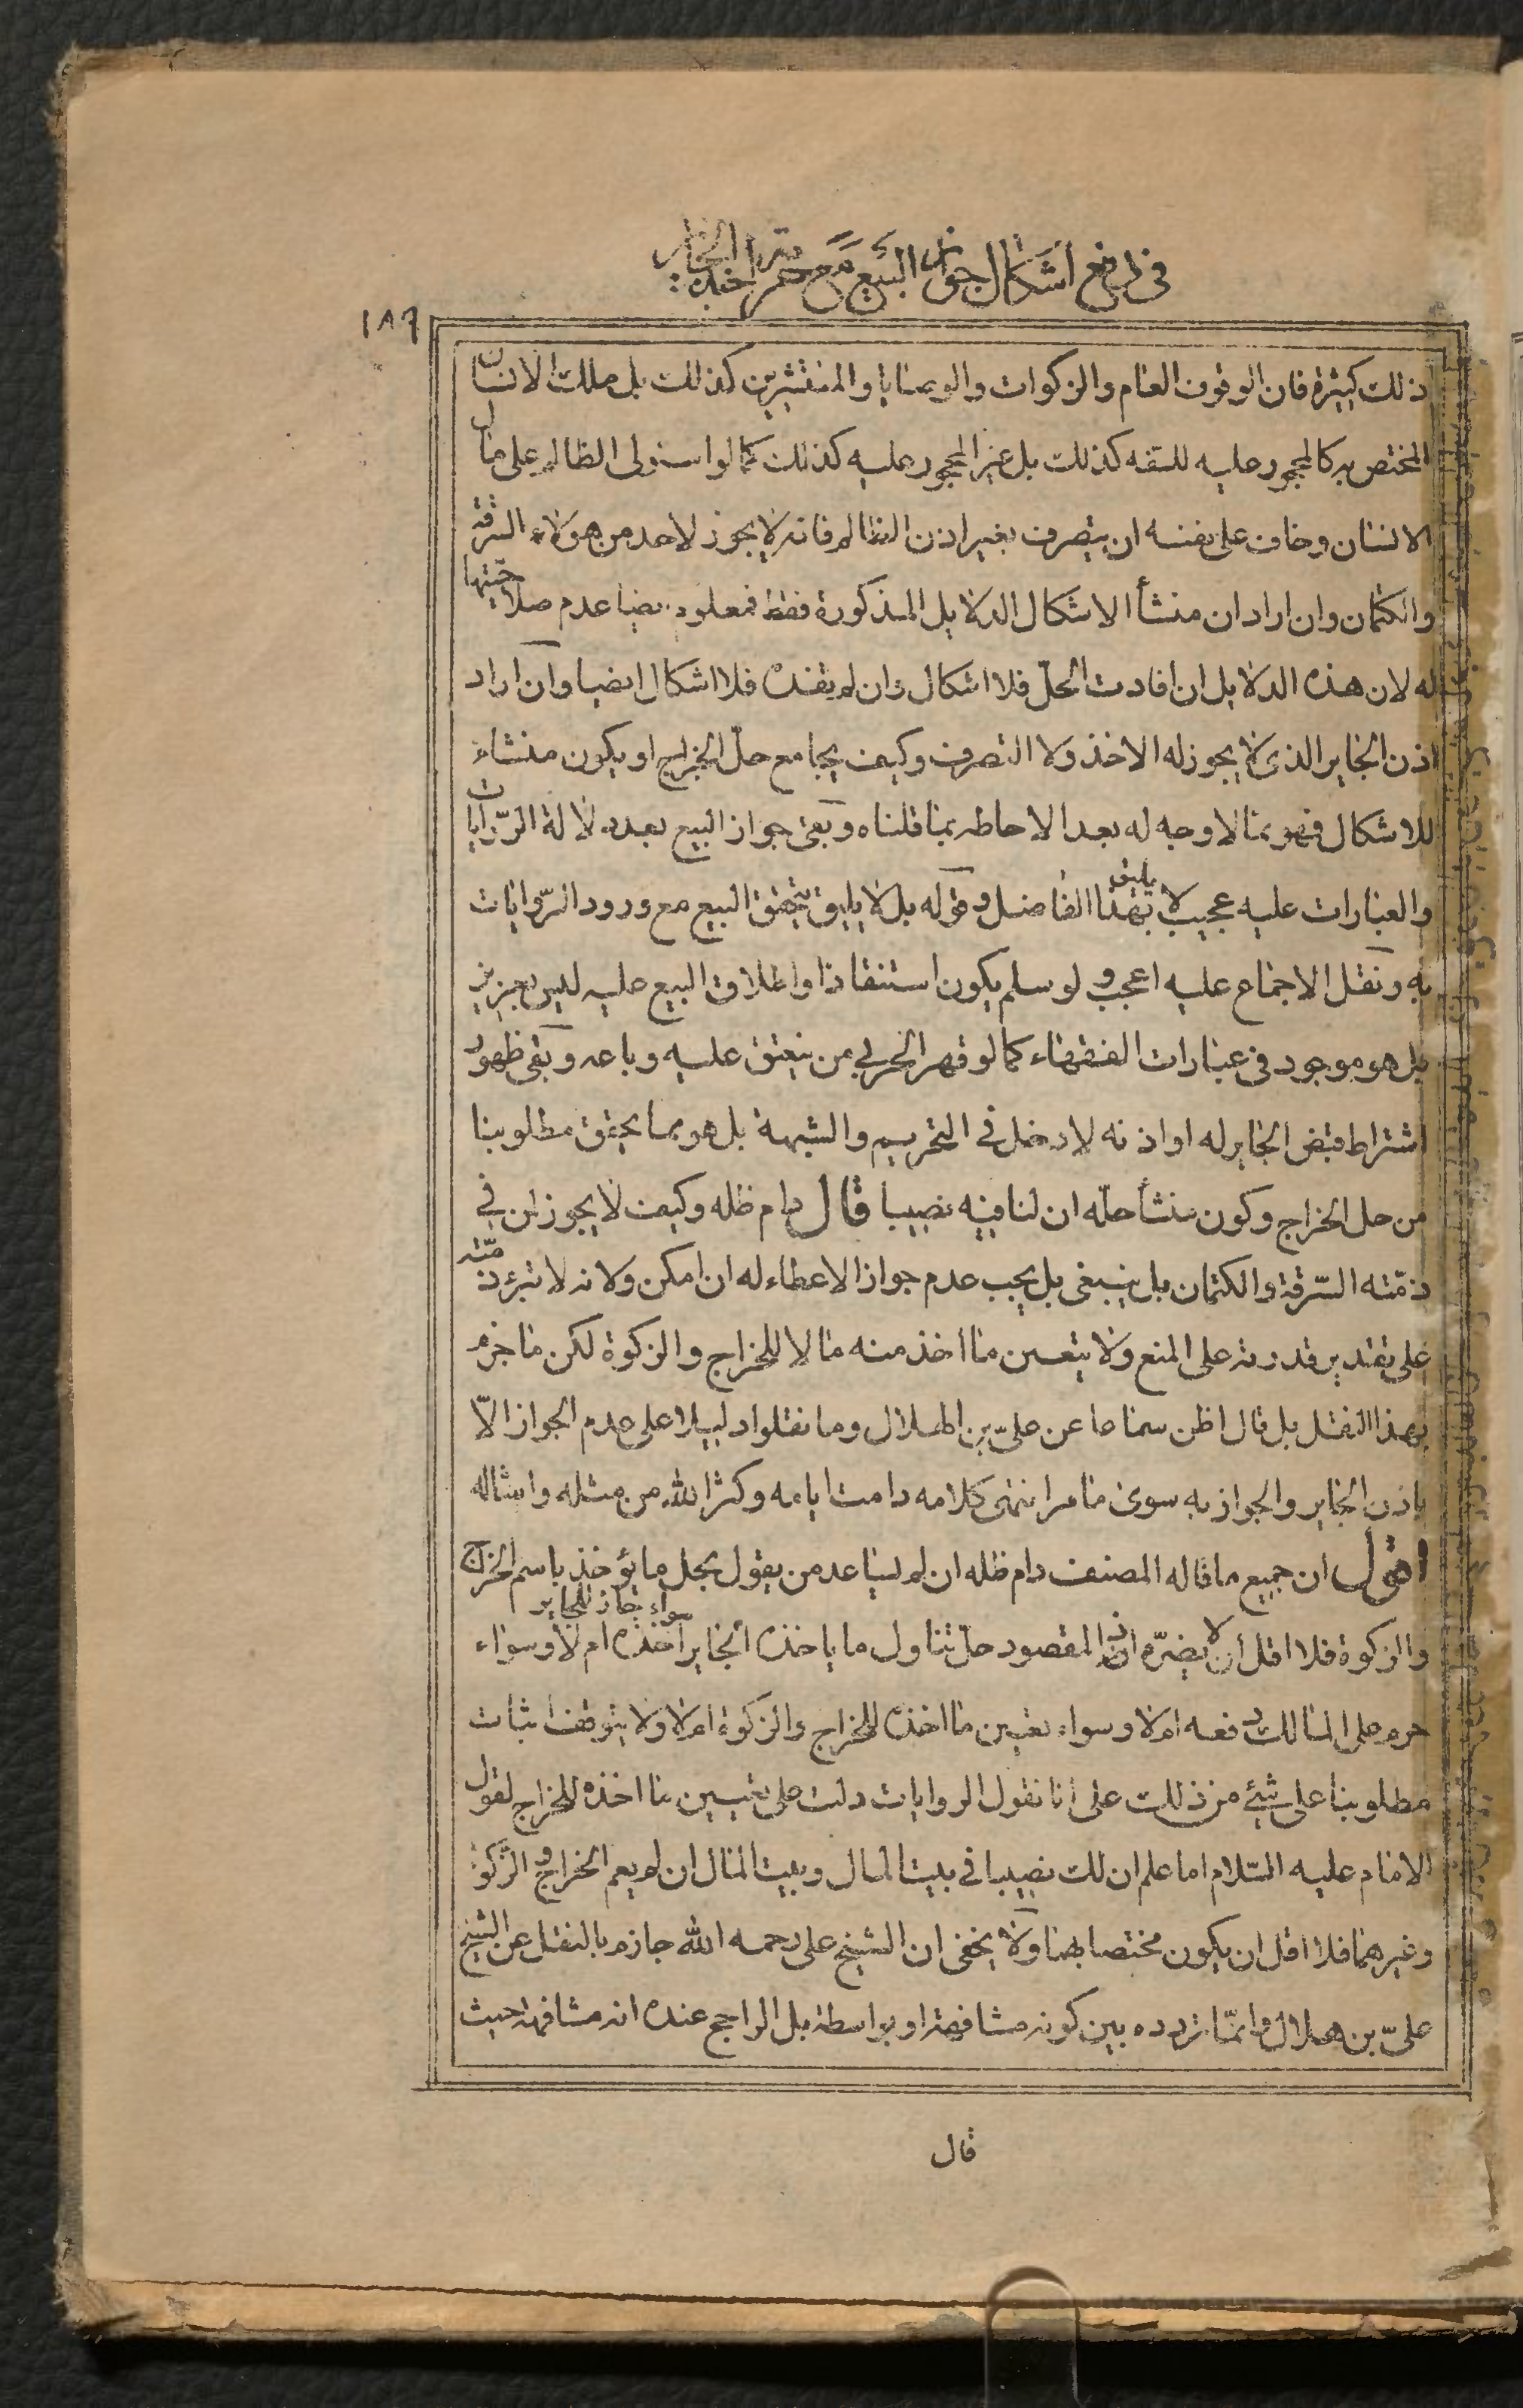 في دفع اشكال جواز البيع مع حرمة اخذه الجاير
١٨٦
ذلك كثيرة فان الوقوف العام والزكوات والوصايا والمنتشرين كذلك بل ملك الانسان
المختص به كالمحجور عليه للسفه كذلك بل غير المحجور عليه كذلك كما لو استولى الظالم على مال
الانسان وخاف على نفسه ان يتصرف بغير اذن الظالم فانه لا يجوز لاحد من هؤلاء السرقة
والكتمان وان اراد ان منشأ الاشكال الدلايل المذكورة فقط فمعلوم ايضا عدم صلاحيتها
له لان هذه الدلايل ان افادت الحل فلا اشكال وان لم يفده فلا اشكال ايضا وان اراد
اذن الجاير الذى لا يجوز له الاخذ ولا التصرف وكيف يجامع حل الخراج او يكون منشاء
للاشكال فهو مما لا وجه له بعد الاحاطه بما قلناه وبقى جواز البيع بعد دلالة الروايات
والعبارات عليه عجيب لا يليق بهذا الفاضل وقوله بل لا يليق بتحقق البيع مع ورود الرّوايات
به ونقل الاجماع عليه اعجب ولو سلم يكون استنقاذا واطلاق البيع عليه ليس بعزيز
بل هو موجود فى عبارات الفقهاء كما لو قهر الحربي من ينعتق عليه وباعه وبقى ظهور
اشتراط قبض الجاير له او اذنه لا دخل فى التحريم والشبهة بل هو مما يحقق مطلوبنا
من حل الخراج وكون منشأ حلّه ان لنا فيه نصيبا قال دام ظله وكيف لا يجوز لمن في
ذمّته السّرقة والكتمان بل ينبغى بل يجب عدم جواز الاعطاء له ان امكن ولانه لا تبرء ذمّته
على تقدير قدرته على المنع ولا يتعين ما اخذ منه مالا للخراج والزكوة لكن ما جزم
بهذا النقل بل قال اظن سماعا عن علىّ بن الهلال وما نقلوا دليلا على عدم الجواز الاّ
باذن الجاير والجواز به سوى ما مر انتهى كلامه دامت ايامه وكثر الله من مثله وامثاله
اقول ان جميع ما قاله المصنف دام ظله ان لم يساعد من يقول بحل ما يؤخذ باسم الخراج
والزكوة فلا اقل ان لا يضرّه اذ المقصود حل تناول ما ياخذه الجاير سواء جاز للجاير اخذه ام لا وسواء
حرم على المالك دفعه ام لا وسواء تعين ما اخذه للخراج والزكوة ام لا ولا يتوقف اثبات
مطلوبنا على شئ من ذلك على انا نقول الروايات دلت على تعيين ما اخذه للخراج لقول
الامام عليه السّلام اما علم ان لك نصيبا فى بيت المال وبيت المال ان لم يعم الخراج والزكوة
وغيرهما فلا اقل ان يكون مختصا بهما ولا يخفى ان الشيخ على رحمه الله جازم بالنقل عن الشيخ
علىّ بن هلال وانمّا تردده بين كونه مشافهة او بواسطة بل الراجح عنده انه مشافهة حيث
قال